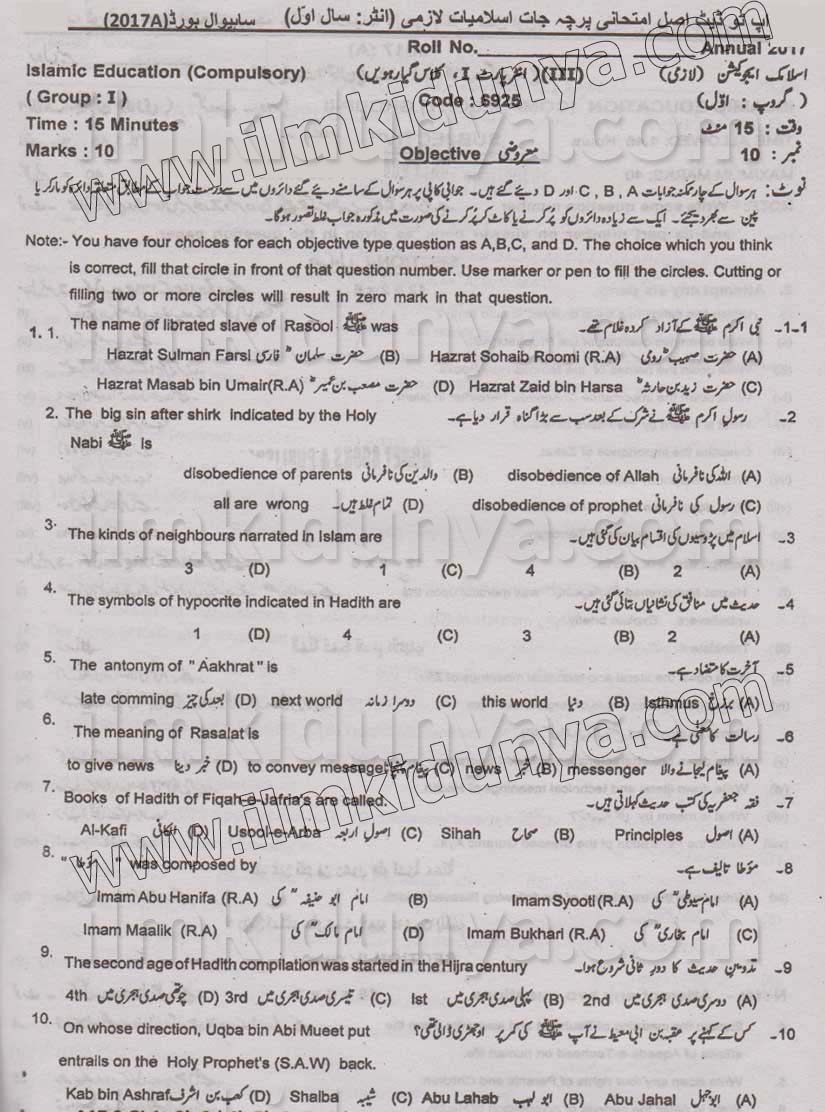 اپ ٹو ڈیٹ اصل امتحانی پرچہ جات اسلامیات لازمی (انٹر: سال اوّل) ساہیوال بورڈ (2017A)
Roll No. Annual 2017
Islamic Education (Compulsory) (III)(انٹر پارٹ I، کلاس گیارہویں) اسلامک ایجوکیشن (لازمی)
( Group : I ) Code : 6925 ( گروپ : اوّل )
Time : 15 Minutes وقت : 15 منٹ
Marks : 10 Objective معروضی نمبر : 10
نوٹ: ہر سوال کے چار ممکنہ جوابات A ، B ، C اور D دیئے گئے ہیں۔ جوابی کاپی پر ہر سوال کے سامنے دیئے گئے دائروں میں سے درست جواب کے مطابق متعلقہ دائرہ کو مارکر یا
پین سے بھر دیجئے۔ ایک سے زیادہ دائروں کو پُر کرنے یا کاٹ کر پُر کرنے کی صورت میں مذکورہ جواب غلط تصور ہوگا۔
Note:- You have four choices for each objective type question as A,B,C, and D. The choice which you think
is correct, fill that circle in front of that question number. Use marker or pen to fill the circles. Cutting or
filling two or more circles will result in zero mark in that question.
1. 1. The name of librated slave of Rasool ﷺ was نبی اکرم ﷺ کے آزاد کردہ غلام تھے۔ -1-1
Hazrat Sulman Farsi حضرت سلمان فارسیؓ (B) Hazrat Sohaib Roomi (R.A) حضرت صہیب رومیؓ (A)
Hazrat Masab bin Umair(R.A) حضرت مصعب بن عمیرؓ (D) Hazrat Zaid bin Harsa حضرت زید بن حارثہؓ (C)
2. The big sin after shirk indicated by the Holy رسول اکرم ﷺ نے شرک کے بعد سب سے بڑا گناہ قرار دیا ہے۔ -2
Nabi ﷺ is
disobedience of parents والدین کی نافرمانی (B) disobedience of Allah اللہ کی نافرمانی (A)
all are wrong تمام غلط ہیں۔ (D) disobedience of prophet رسول کی نافرمانی (C)
3. The kinds of neighbours narrated in Islam are اسلام میں پڑوسیوں کی اقسام بیان کی گئی ہیں۔ -3
3 (D) 1 (C) 4 (B) 2 (A)
4. The symbols of hypocrite indicated in Hadith are حدیث میں منافق کی نشانیاں بتائی گئی ہیں۔ -4
1 (D) 4 (C) 3 (B) 2 (A)
5. The antonym of " Aakhrat " is آخرت کا متضاد ہے۔ -5
late comming بعد کی چیز (D) next world دوسرا زمانہ (C) this world دنیا (B) Isthmus برزخ (A)
6. The meaning of Rasalat is رسالت کا معنی ہے۔ -6
to give news خبر دینا (D) to convey message پیغام پہنچانا (C) news خبر (B) messenger پیغام لیجانے والا (A)
7. Books of Hadith of Fiqah-e-Jafria's are called. فقہ جعفریہ کی کتب حدیث کہلاتی ہیں۔ -7
Al-Kafi الکافی (D) Usool-e-Arba اصول اربعہ (C) Sihah صحاح (B) Principles اصول (A)
8. " مؤطا " was composed by مؤطا تالیف ہے۔ -8
Imam Abu Hanifa (R.A) امام ابو حنیفہؒ کی (B) Imam Syooti (R.A) امام سیوطیؒ کی (A)
Imam Maalik (R.A) امام مالکؒ کی (D) Imam Bukhari (R.A) امام بخاریؒ کی (C)
9. The second age of Hadith compilation was started in the Hijra century تدوین حدیث کا دورِ ثانی شروع ہوا۔ -9
4th چوتھی صدی ہجری میں (D) 3rd تیسری صدی ہجری میں (C) Ist پہلی صدی ہجری میں (B) 2nd دوسری صدی ہجری میں (A)
10. On whose direction, Uqba bin Abi Mueet put کس کے کہنے پر عقبہ بن ابی معیط نے آپ ﷺ کی کمر پر اوجھڑی ڈالی تھی؟ -10
entrails on the Holy Prophet's (S.A.W) back.
Kab bin Ashraf کعب بن اشرف (D) Shaiba شیبہ (C) Abu Lahab ابو لہب (B) Abu Jahal ابو جہل (A)
www.ilmkidunya.com